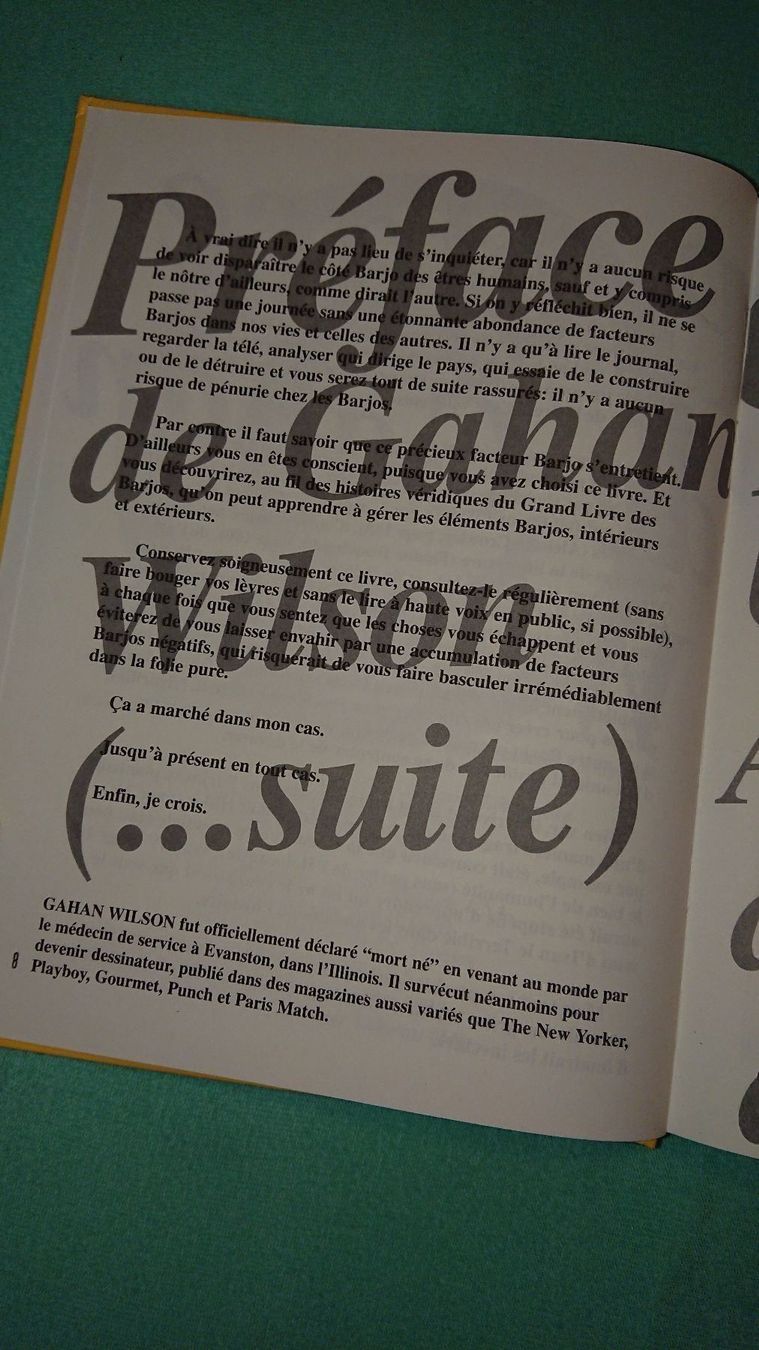 Préface
de Gahan
Wilson
(...suite)
À vrai dire il n’y a pas lieu de s’inquiéter, car il n’y a aucun risque
de voir disparaître le côté Barjo des êtres humains, sauf et y compris
le nôtre d’ailleurs, comme dirait l’autre. Si on y réfléchit bien, il ne se
passe pas une journée sans une étonnante abondance de facteurs
Barjos dans nos vies et celles des autres. Il n’y a qu’à lire le journal,
regarder la télé, analyser qui dirige le pays, qui essaie de le construire
ou de le détruire et vous serez tout de suite rassurés: il n’y a aucun
risque de pénurie chez les Barjos.
Par contre il faut savoir que ce précieux facteur Barjo s’entretient.
D’ailleurs vous en êtes conscient, puisque vous avez choisi ce livre. Et
vous découvrirez, au fil des histoires véridiques du Grand Livre des
Barjos, qu’on peut apprendre à gérer les éléments Barjos, intérieurs
et extérieurs.
Conservez soigneusement ce livre, consultez-le régulièrement (sans
faire bouger vos lèvres et sans le lire à haute voix en public, si possible),
à chaque fois que vous sentez que les choses vous échappent et vous
éviterez de vous laisser envahir par une accumulation de facteurs
Barjos négatifs, qui risquerait de vous faire basculer irrémédiablement
dans la folie pure.
Ça a marché dans mon cas.
Jusqu’à présent en tout cas.
Enfin, je crois.
GAHAN WILSON fut officiellement déclaré “mort né” en venant au monde par
le médecin de service à Evanston, dans l’Illinois. Il survécut néanmoins pour
devenir dessinateur, publié dans des magazines aussi variés que The New Yorker,
Playboy, Gourmet, Punch et Paris Match.
8